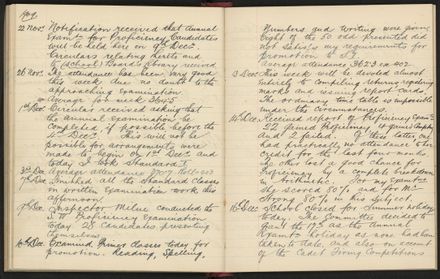 1909
22 Nov. Notification received that Annual
Exam. for Proficiency Candidates
will be held here on 9th Dec.
Circulars re
(School) Board & library received
26 Nov. The attendance has been very good
this week due no doubt to the
approaching examination
Average for week
1st Dec. Circular received asking that
the annual examination be
completed, if possible before the
This will not be
possible for arrangements were
made to begin on 1st Dec. and
today I took Standard
3rd Dec. Average attendance
7th Dec. Finished all the Standard Classes
in written Examination work this
afternoon
9th Dec. Inspector Milne conducted the
Proficiency Examination
today 28 Candidates presenting
themselves
10th Dec. Examined Primer classes today for
promotion. Reading, Spelling,
Numbers and writing were given
Eight of the 50 odd presented did
not satisfy my requirements for
promotion to
Average attendance
13 Dec. This week will be devoted almost
entirely to compiling returns regarding
marks and issuing report cards
The ordinary time table is impossible
under the circumstances
14 Dec. Received report of Proficiency Exam
22 gained Proficiency
and 2 failed. of this latter one
had practically no attendance to her
credit for the last four months
the other lost a good chance for
Proficiency by a complete breakdown
in Arithmetic. For my exam
she scored 50% and for Mr
Strong 80% in this subject.
16 Dec. School closed for Summer holiday
today. The Committee decided to
grant the 17th as the annual
Exam. holiday as none had been
taken to date, and also on account
of the Cadet Firing Competitions